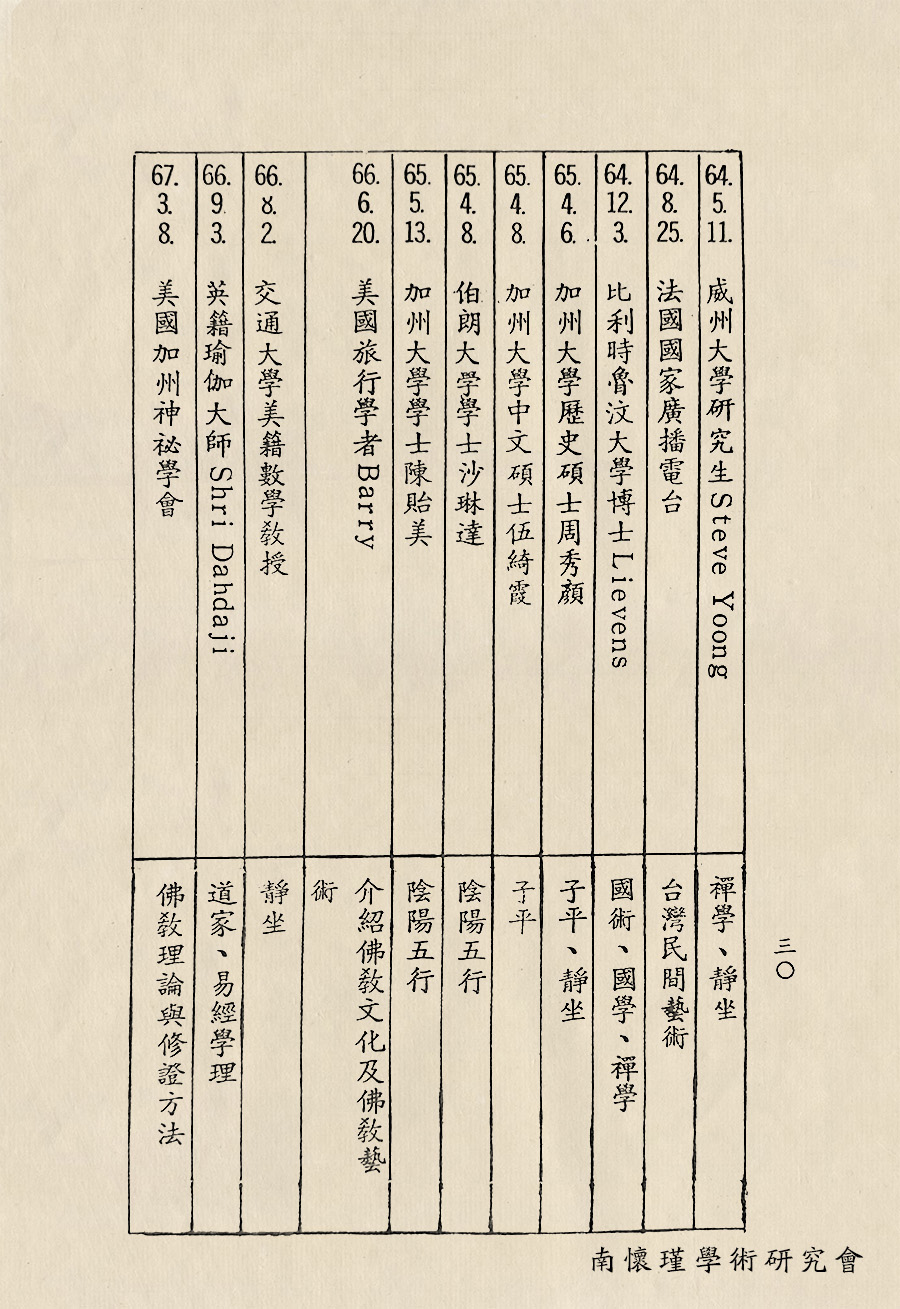 三〇
64. 5. 11. 威州大學研究生 Steve Yoong 禪學、靜坐
64. 8. 25. 法國國家廣播電台 台灣民間藝術
64. 12. 3. 比利時魯汶大學博士 Lievens 國術、國學、禪學
65. 4. 6. 加州大學歷史碩士周秀顏 子平、靜坐
65. 4. 8. 加州大學中文碩士伍綺霞 子平
65. 4. 8. 伯朗大學學士沙琳達 陰陽五行
65. 5. 13. 加州大學學士陳貽美 陰陽五行
66. 6. 20. 美國旅行學者 Barry 介紹佛教文化及佛教藝
術
66. 8. 2. 交通大學美籍數學教授 靜坐
66. 9. 3. 英籍瑜伽大師 Shri Dahdaji 道家、易經學理
67. 3. 8. 美國加州神祕學會 佛教理論與修證方法
南懷瑾學術研究會